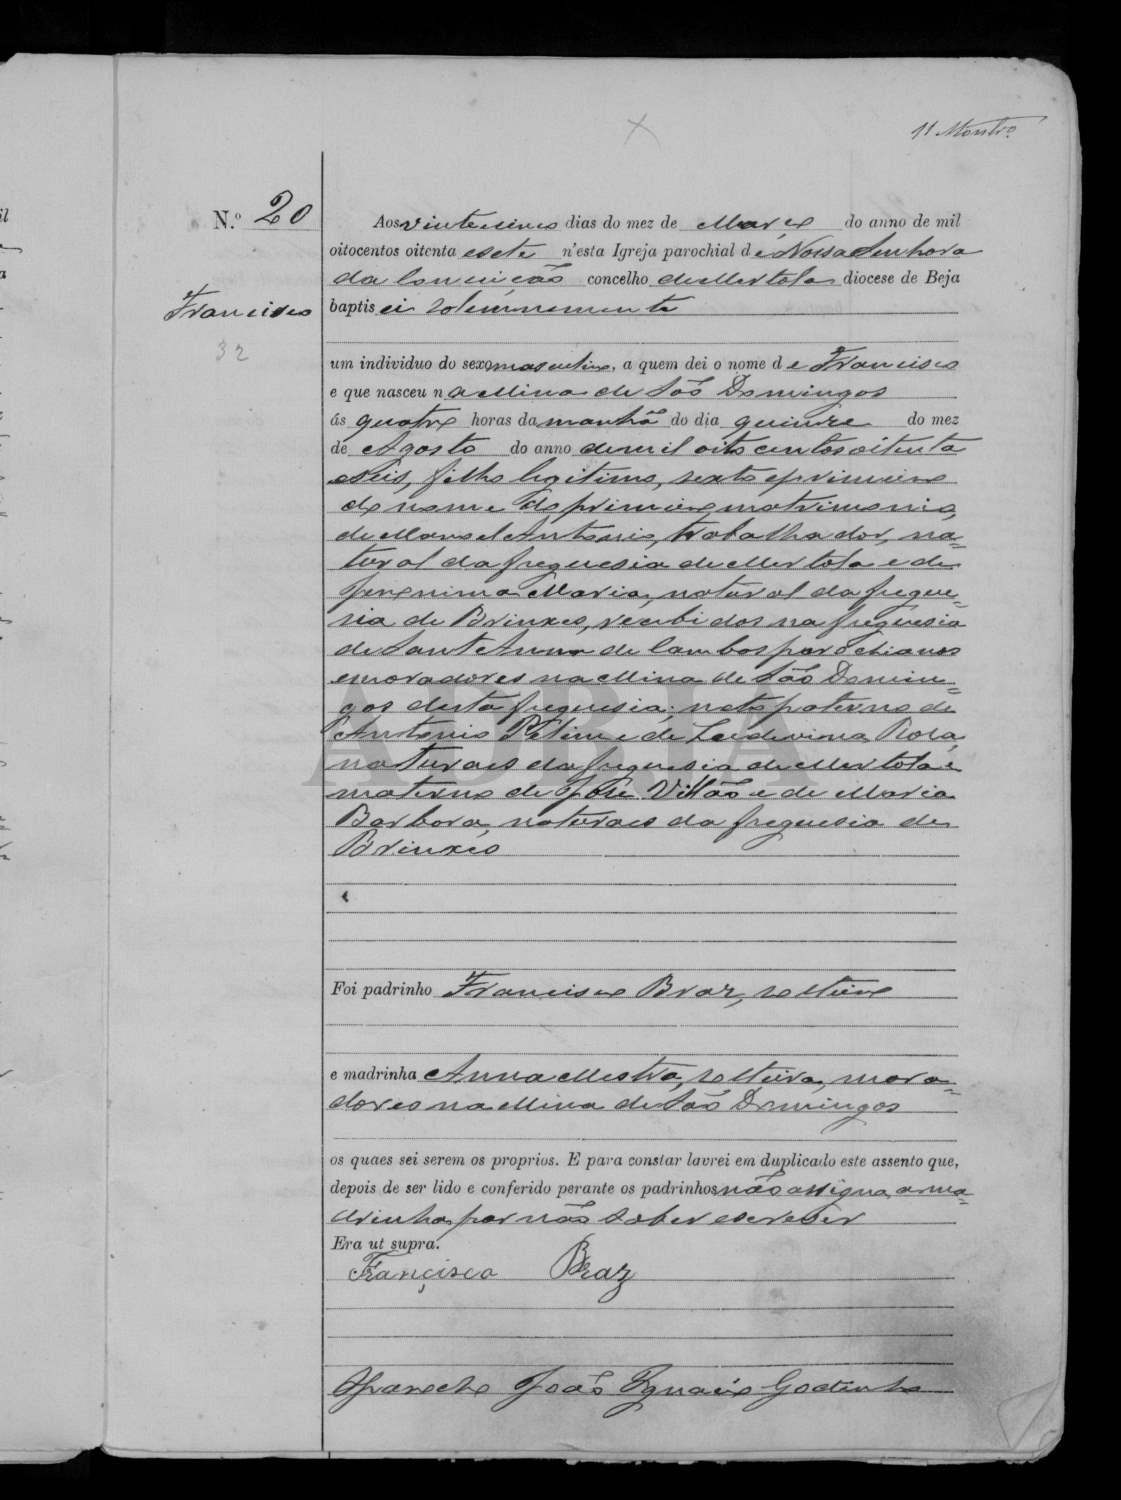 11 Montrº
N.º 20
Aos vinte e cinco dias do mez de Março do anno de mil
oitocentos oitenta e sete n'esta Igreja parochial de Nossa Senhora
da Conceição concelho de Mertola diocese de Beja
Francisco
baptisei solemnemente
32
um individuo do sexo masculino, a quem dei o nome de Francisco
e que nasceu na Mina de São Domingos
ás quatro horas da manhã do dia quinze do mez
de Agosto do anno de mil oito centos oitenta
e seis, filho legitimo, sexto e primeiro
do nome do primeiro matrimonio,
de Manoel Antonio, trabalhador, na=
tural da freguesia de Mertola e de
Jeronima Maria, natural da fregue=
sia de Brinxes, recebidos na freguesia
de Sant'Anna de Cambas parochianos
e moradores na Mina de São Domin=
gos desta freguesia; neto paterno de
Antonio e de Ludovina Rosa,
naturaes da freguesia de Mertola e
materno de José Villão e de Maria
Barbora, naturaes da freguesia de
Brinxes
Foi padrinho Francisco Braz, solteiro
e madrinha Anna Mestra, solteira, mora=
dores na Mina de São Domingos
os quaes sei serem os proprios. E para constar lavrei em duplicado este assento que,
depois de ser lido e conferido perante os padrinhos não assigna a ma=
drinha por não saber escrever
Era ut supra.
Françisco Braz
O Parocho João Ignacio Godinho
ADBJA